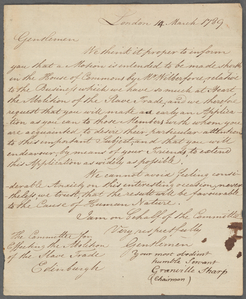 London 14 March 1789
Gentlemen
We think it proper to inform
you that a Motion is intended to be made
in the House of Commons by Mr Wilberforce, relative
to the Business which we have so much at Heart,
the Abolition of the Slave Trade, and we therefore
request that you will make as early an Applica-
tion as you can, to those Members to whom you
are acquainted, to desire their particular attention
to this important Subject, and that you will
endeavour, by means of your Friends to extend
this Application as widely as possible.
We cannot avoid feeling consi-
derable Anxiety on this interesting occasion, never-
theless we trust, that the result will be favourable
to the Cause of Human Nature.
I am on behalf of the Committee
Very respectfully
The Committee for
Gentlemen
effecting the Abolition
Your most obedient
of the Slave Trade
humble Servant
Edinburgh
Granville Sharp
(Chairman)